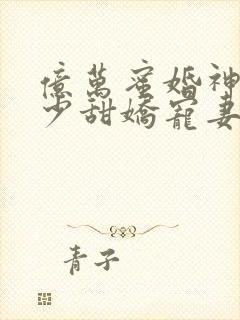 億萬蜜婚神
少甜嬌寵妻
青子